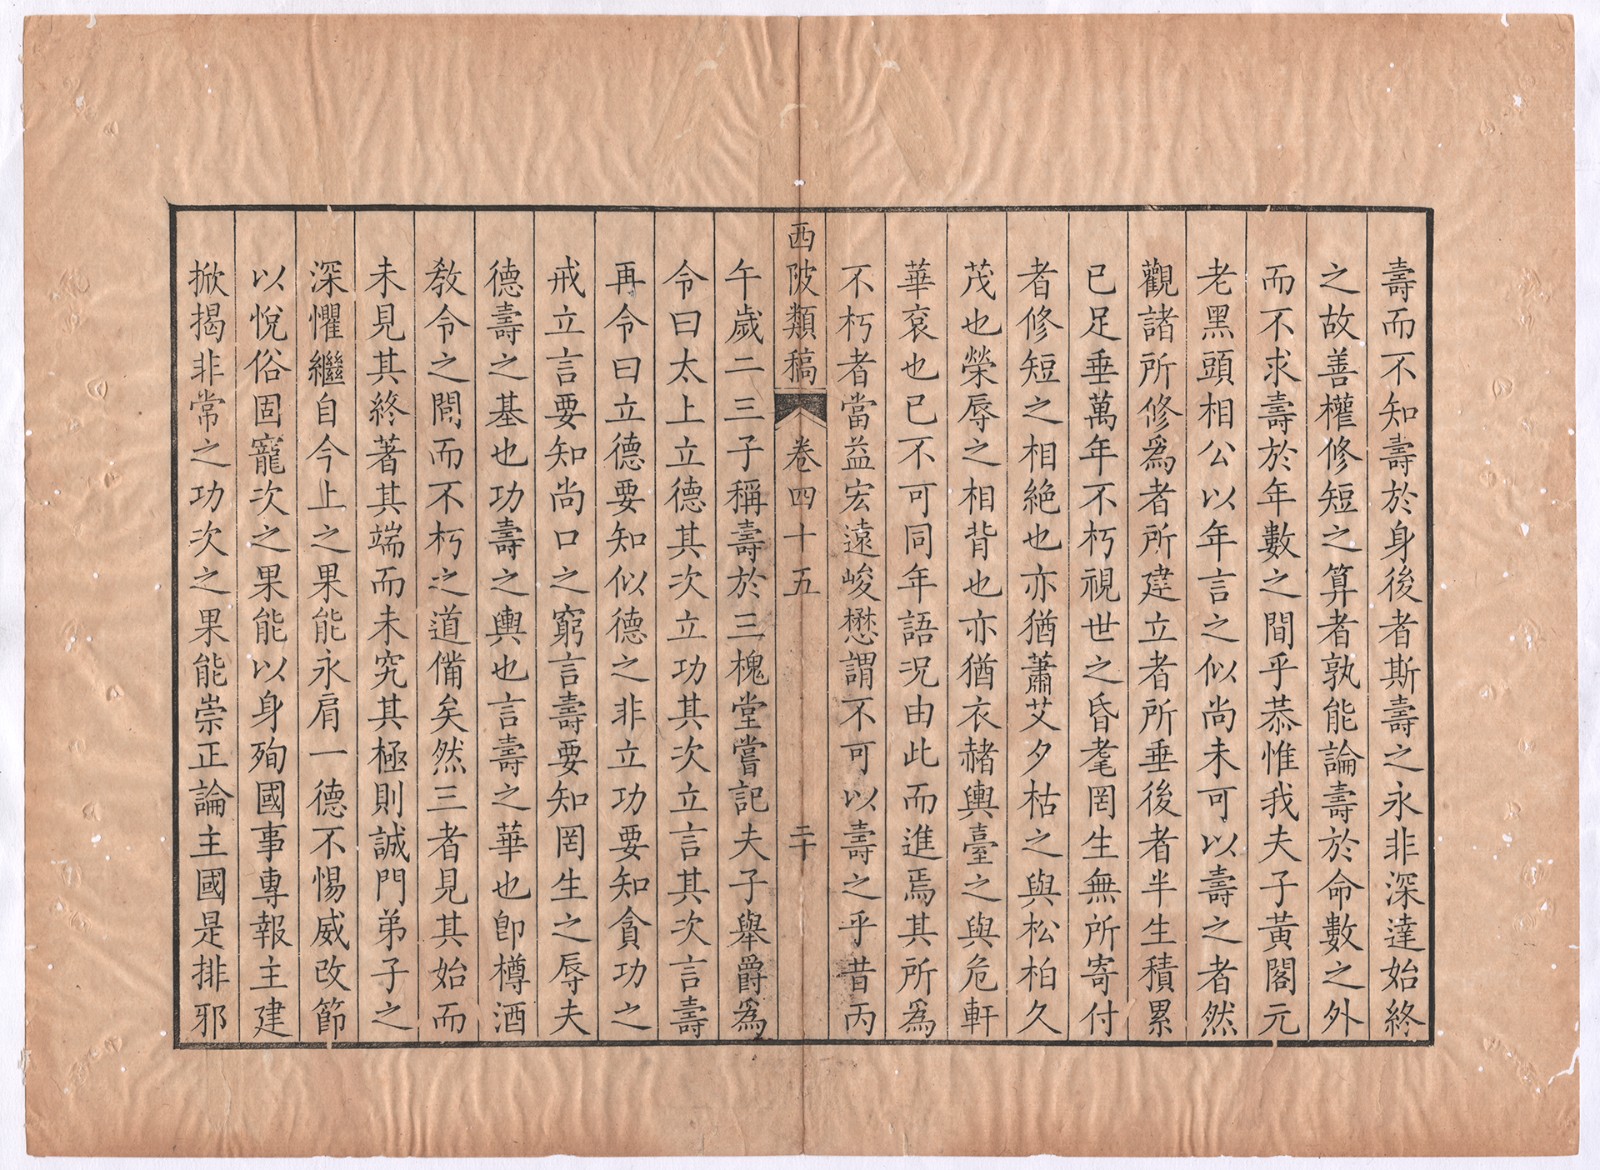 壽而不知壽於身後者斯壽之永非深達始終
之故善權修短之算者孰能論壽於命數之外
而不求壽於年數之間乎恭惟我夫子黃閣元
老黑頭相公以年言之似尚未可以壽之者然
觀諸所修爲者所建立者所垂後者半生積累
已足垂萬年不朽視世之昏耄罔生無所寄付
者修短之相絶也亦猶蕭艾夕枯之與松柏久
茂也榮辱之相背也亦猶衣赭輿臺之與危軒
華袞也已不可同年語況由此而進焉其所爲
不朽者當益宏遠峻懋謂不可以壽之乎昔丙
西陂類稿 卷四十五 二十
午歲二三子稱壽於三槐堂嘗記夫子舉爵爲
令曰太上立德其次立功其次立言其次言壽
再令曰立德要知似德之非立功要知貪功之
戒立言要知尚口之窮言壽要知罔生之辱夫
德壽之基也功壽之輿也言壽之華也卽樽酒
敎令之閒而不朽之道備矣然三者見其始而
未見其終著其端而未究其極則誠門弟子之
深懼繼自今上之果能永肩一德不惕威改節
以悅俗固寵次之果能以身殉國事專報主建
掀揭非常之功次之果能崇正論主國是排邪